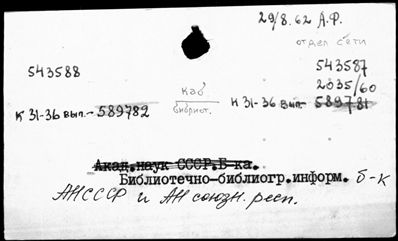 29/8.62 А.Ф.
отдел сети
543588 каб 543587
библиот. 2035/60
К 31-36 вып.- 589782 К 31-36 вып.- 589781
Акад.наук СССР.Б-ка.
Библиотечно-библиогр.информ. б-к
АН СССР и АН союзн. респ.